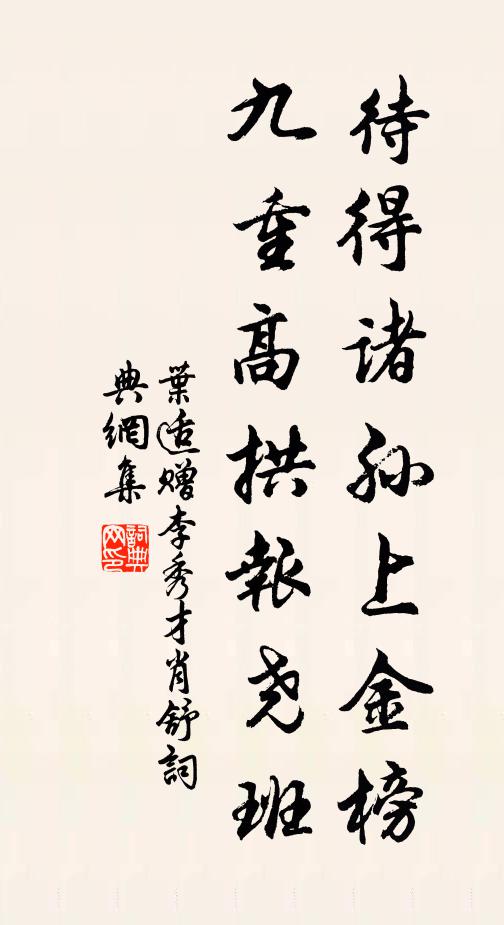 待得诸孙上金榜
九重高拱報尧班
葉适赠李秀才肖舒詞
典網集
詞典网印